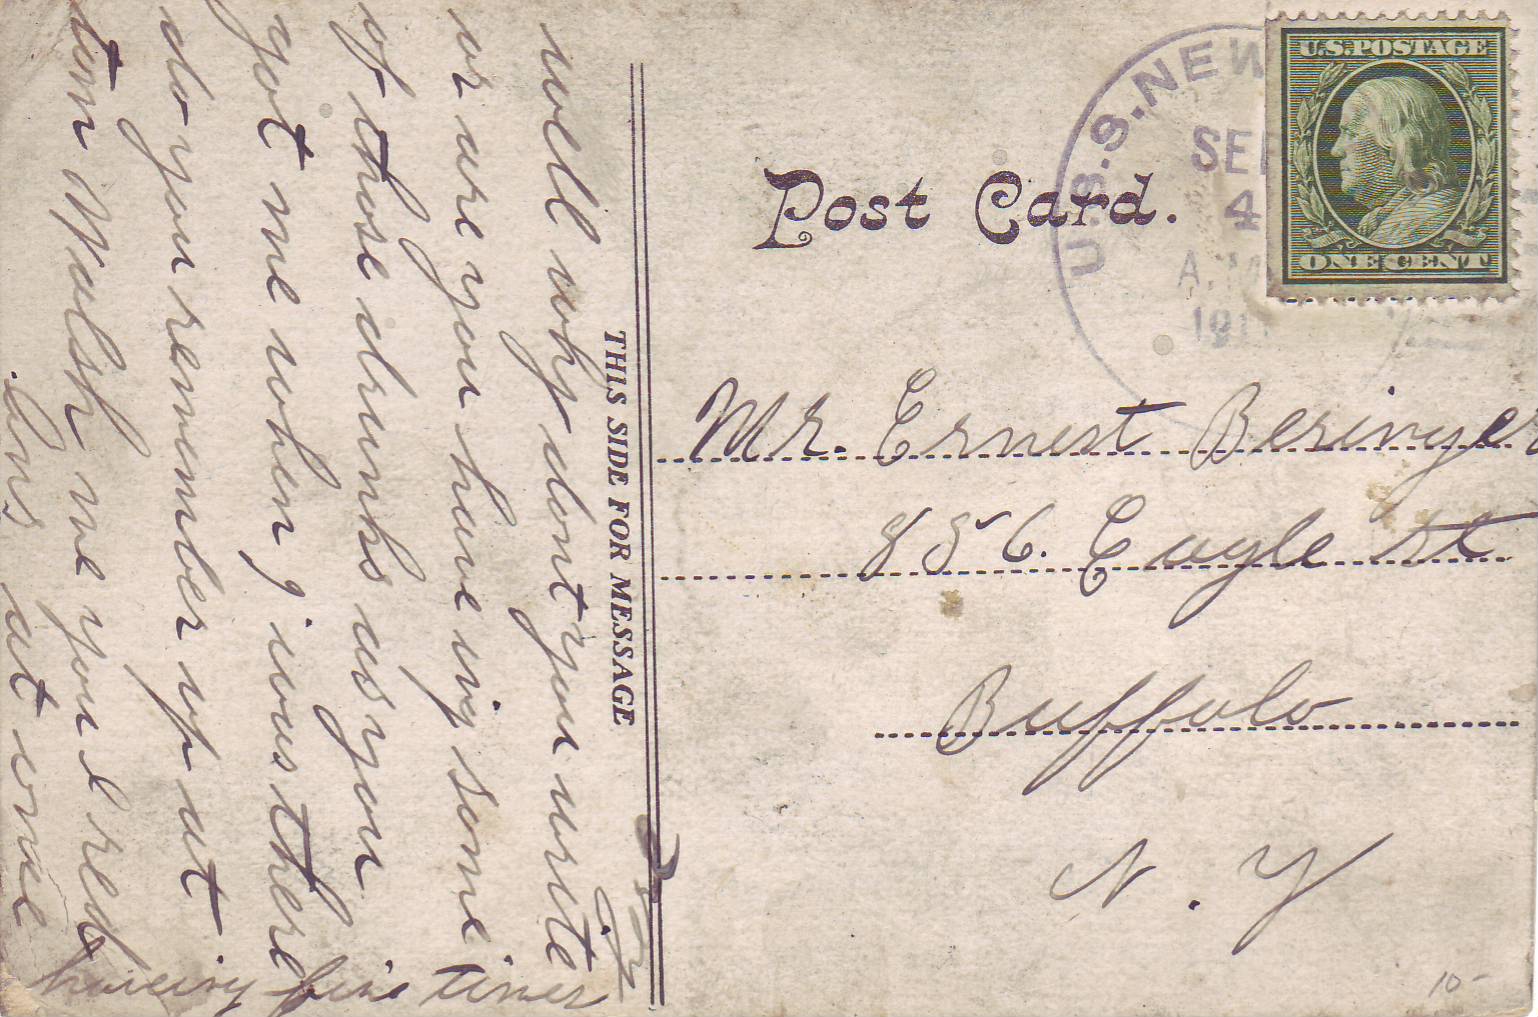 U.S.S. NEW
SEP
4
A.M
191
U.S. POSTAGE
ONE CENT
Post Card.
THIS SIDE FOR MESSAGE
Mr. Ernest Beringer
856. Eagle st
Buffalo
N. Y
well why dont you write
or are you haveing some
of those drunks as you
got me when, i was there
do you remember up at
tom Walsh me you & red
Ans at once
haveing fine times
10-